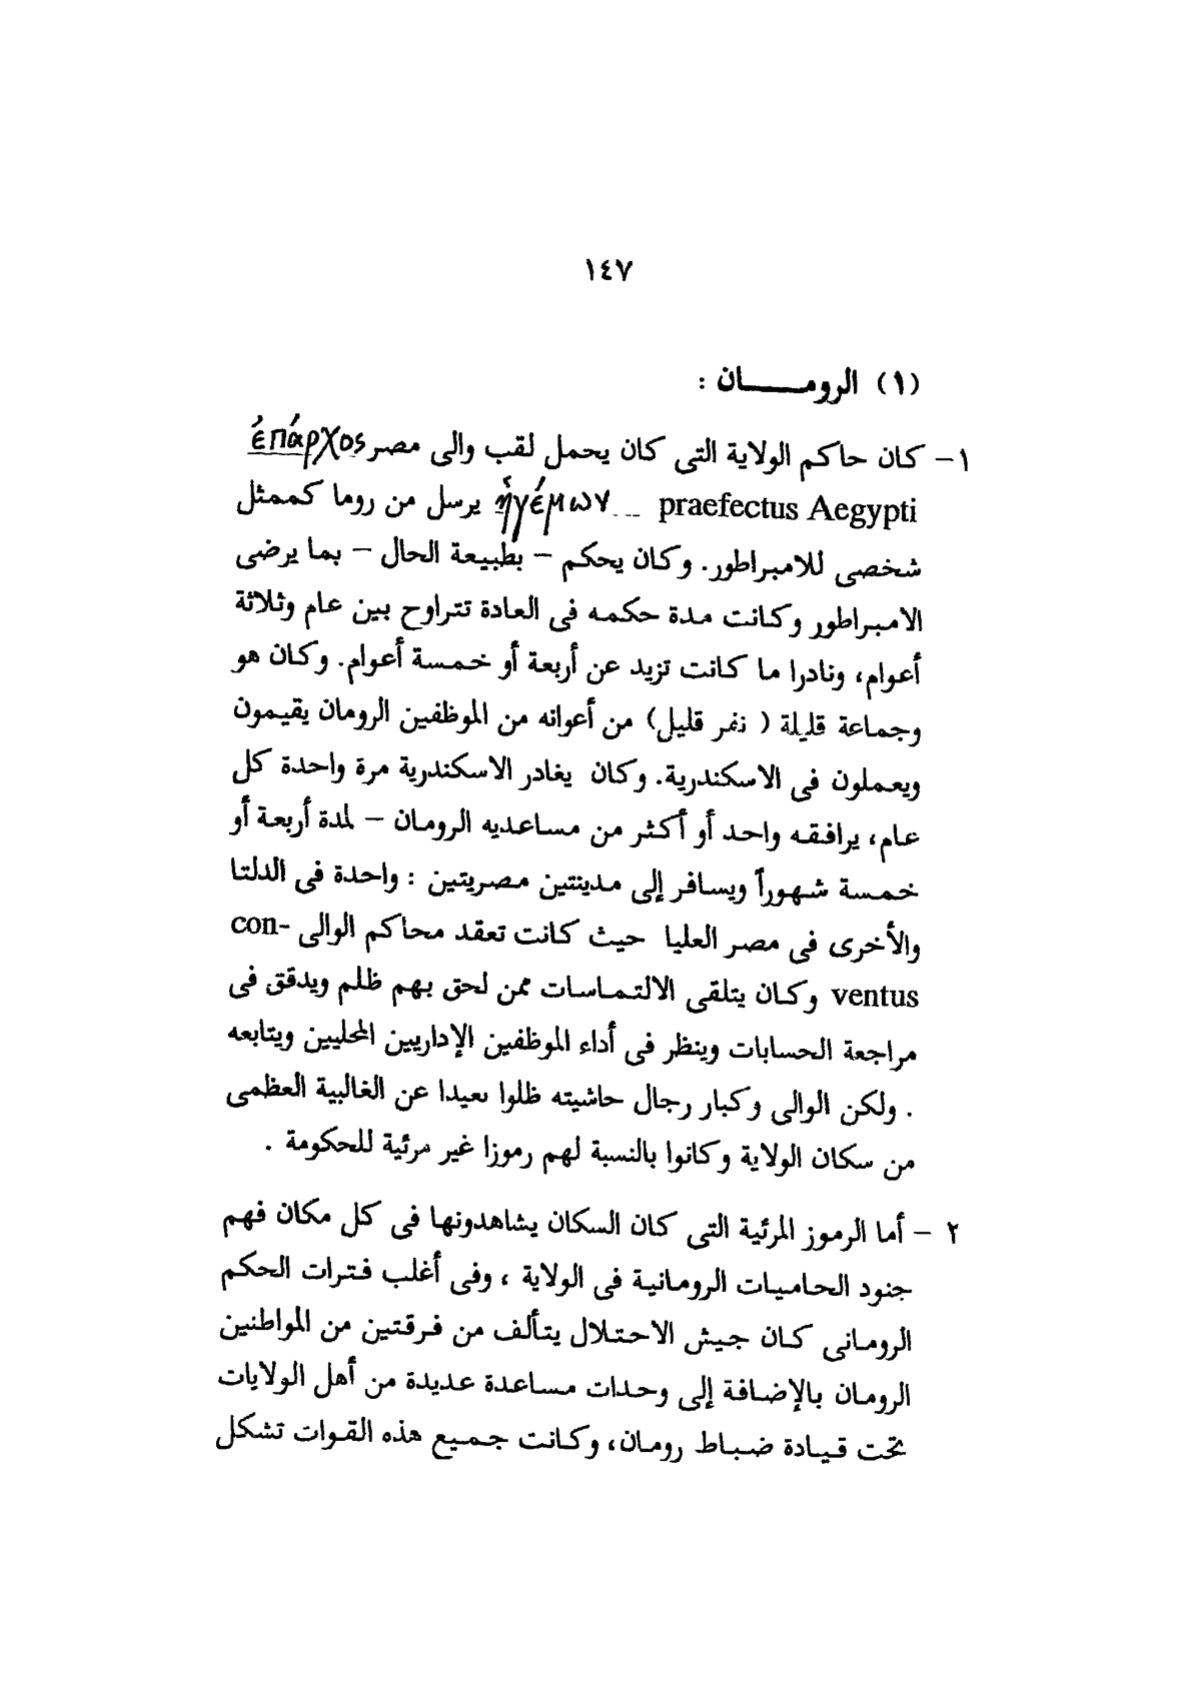 ١٤٧
(١) الرومـــــان :
١- كان حاكم الولاية التى كان يحمل لقب والى مصر ἐπάρχος
praefectus Aegypti ... ἡγέμων يرسل من روما كممثل
شخصى للامبراطور. وكان يحكم – بطبيعة الحال – بما يرضى
الامبراطور وكانت مدة حكمه فى العادة تتراوح بين عام وثلاثة
أعوام، ونادرا ما كانت تزيد عن أربعة أو خمسة أعوام. وكان هو
وجماعة قليلة ( نفر قليل) من أعوانه من الموظفين الرومان يقيمون
ويعملون فى الاسكندرية. وكان يغادر الاسكندرية مرة واحدة كل
عام، يرافقه واحد أو أكثر من مساعديه الرومان – لمدة أربعة أو
خمسة شهوراً ويسافر إلى مدينتين مصريتين : واحدة فى الدلتا
والأخرى فى مصر العليا حيث كانت تعقد محاكم الوالى con-
ventus وكان يتلقى الالتماسات ممن لحق بهم ظلم ويدقق فى
مراجعة الحسابات وينظر فى أداء الموظفين الإداريين المحليين ويتابعه
. ولكن الوالى وكبار رجال حاشيته ظلوا بعيدا عن الغالبية العظمى
من سكان الولاية وكانوا بالنسبة لهم رموزا غير مرئية للحكومة .
٢ – أما الرموز المرئية التى كان السكان يشاهدونها فى كل مكان فهم
جنود الحاميات الرومانية فى الولاية ، وفى أغلب فترات الحكم
الرومانى كان جيش الاحتلال يتألف من فرقتين من المواطنين
الرومان بالإضافة إلى وحدات مساعدة عديدة من أهل الولايات
تحت قيادة ضباط رومان، وكانت جميع هذه القوات تشكل